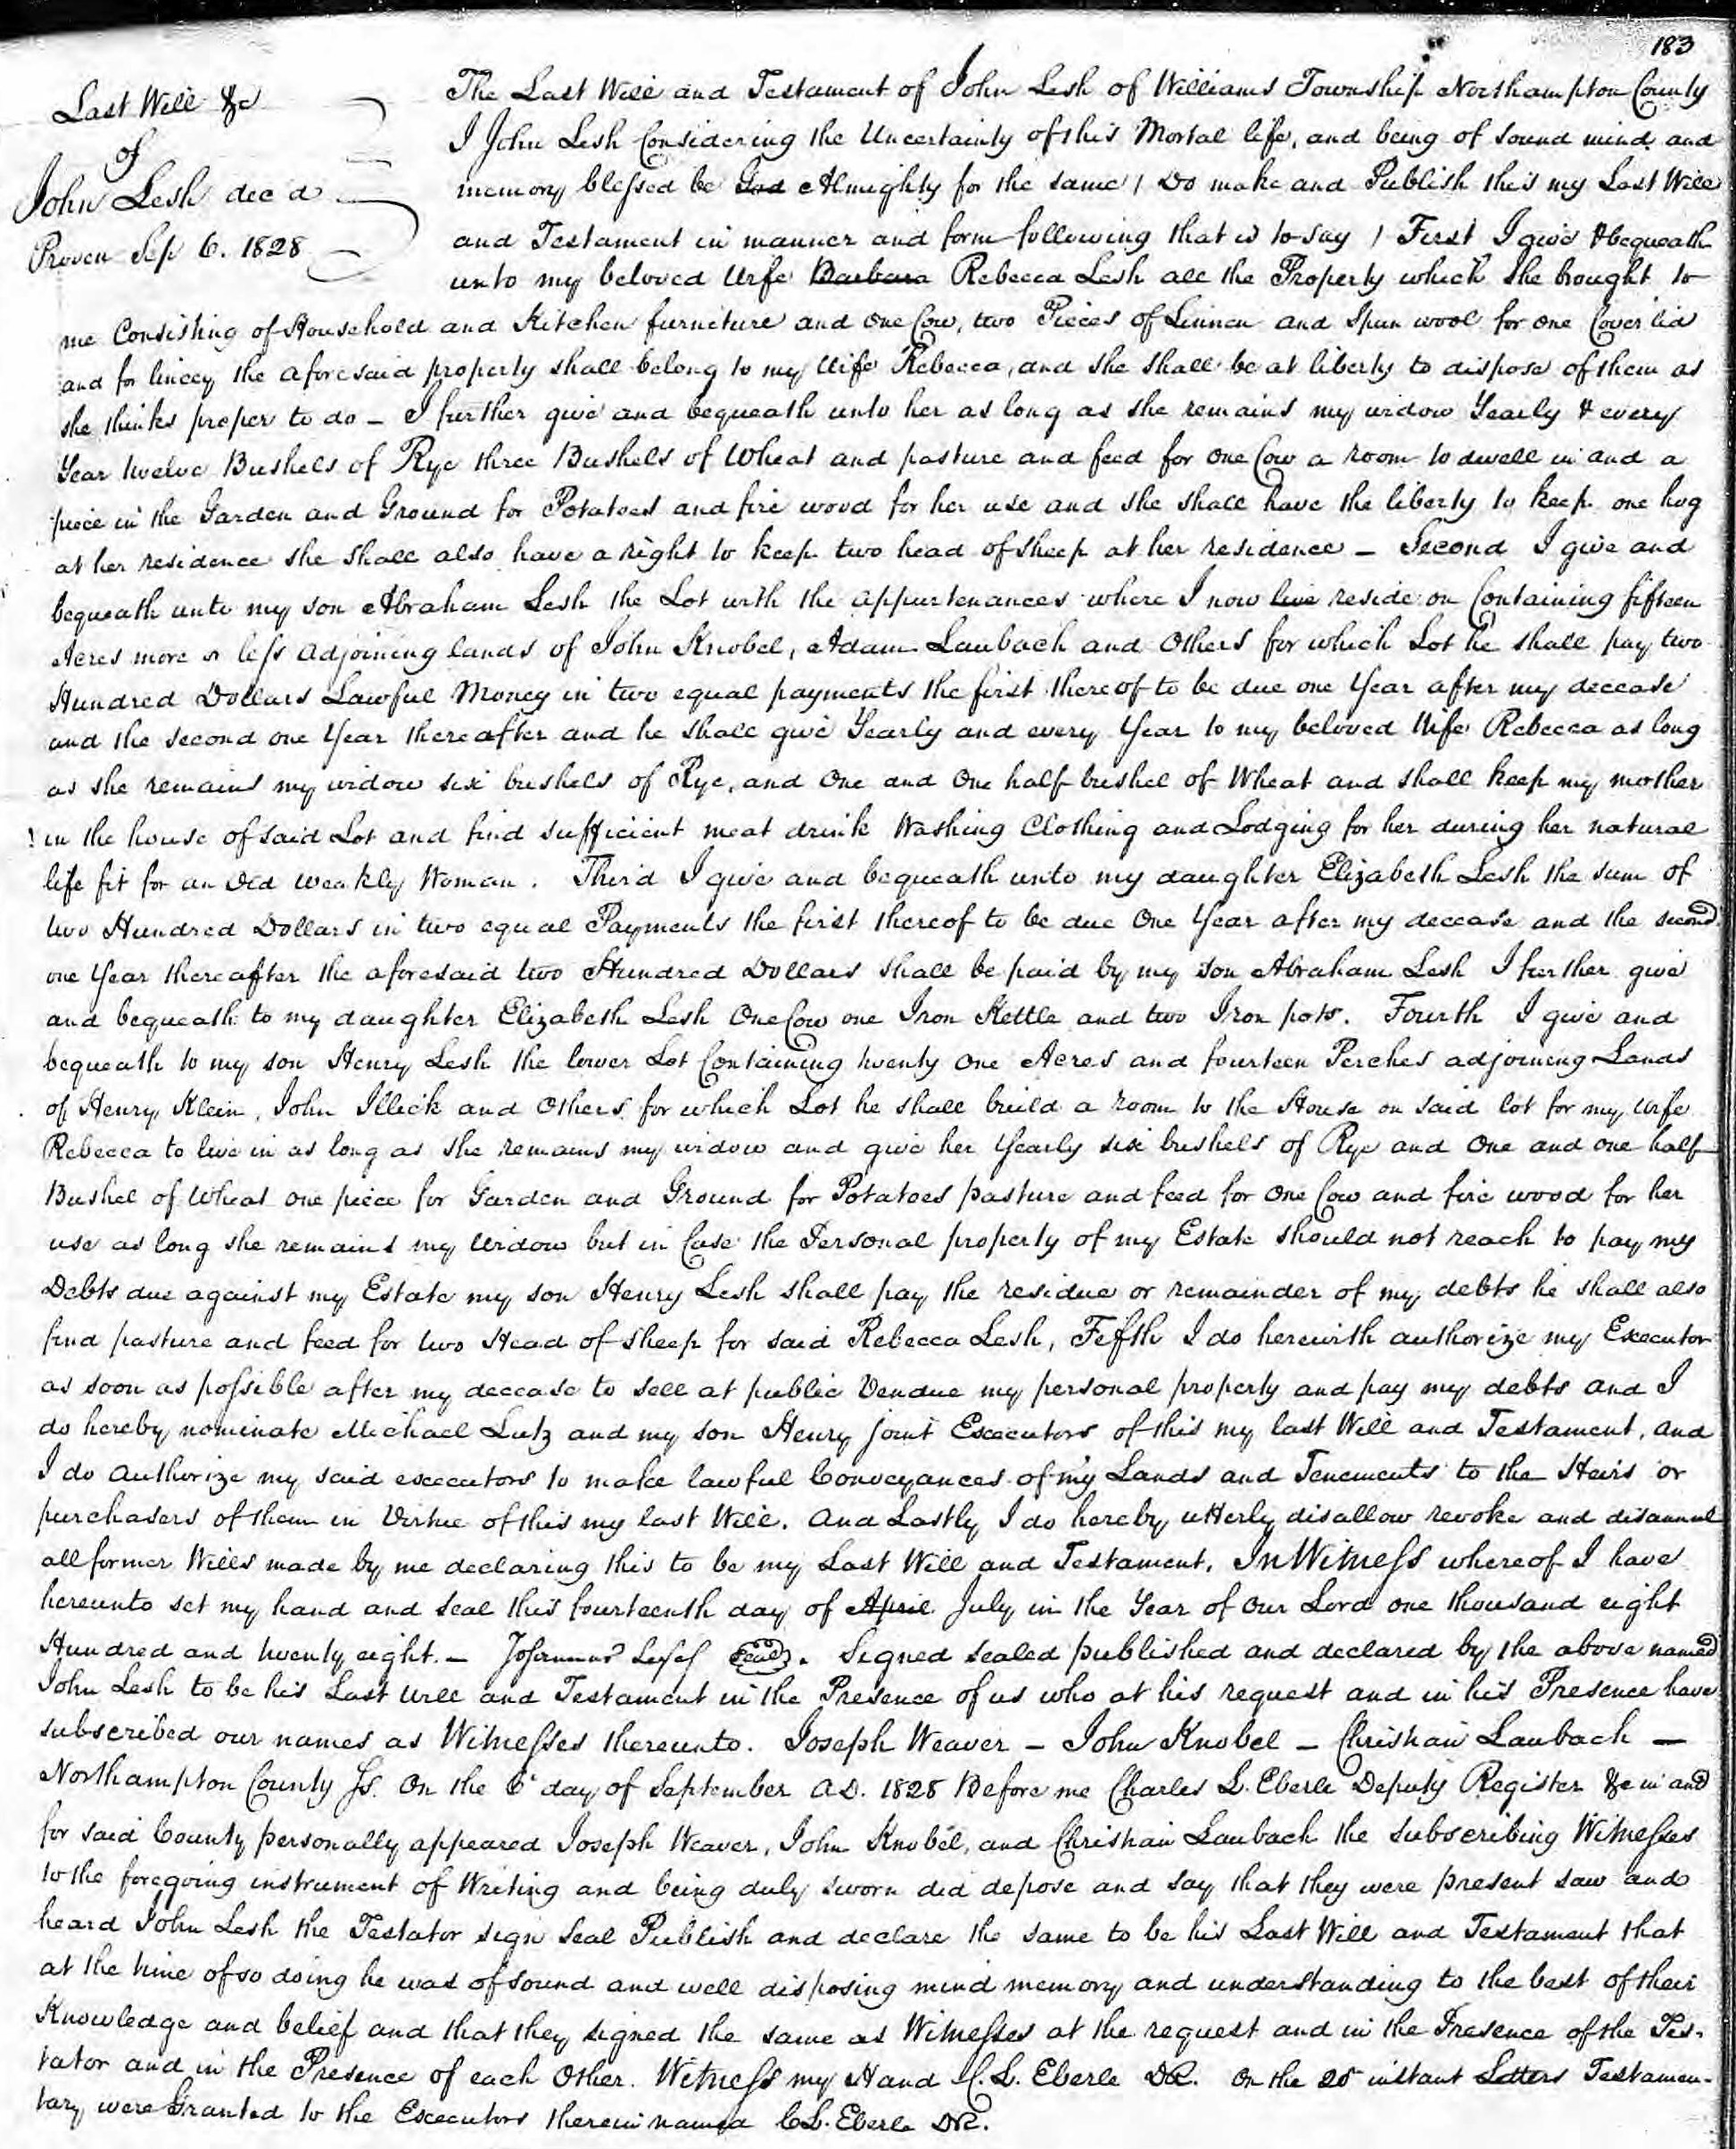 183
Last Will &c
of
John Lesh dec'd
Proven Sep 6. 1828
The Last Will and Testament of John Lesh of Williams Township Northampton County
I John Lesh Considering the Uncertainty of this Mortal life, and being of sound mind and
memory blessed be God Almighty for the same / Do make and Publish this my Last Will
and Testament in manner and form following that is to say / First I give & bequeath
unto my beloved Wife Barbara Rebecca Lesh all the Property which She brought to
me Consisting of Household and Kitchen furniture and one Cow, two Pieces of Linnen and Spun wool for one Coverlid
and for lincey the aforesaid property shall belong to my Wife Rebecca, and she shall be at liberty to dispose of them as
she thinks proper to do – I further give and bequeath unto her as long as she remains my widow Yearly & every
Year twelve Bushels of Rye three Bushels of Wheat and pasture and feed for one Cow a room to dwell in and a
piece in the Garden and Ground for Potatoes and fire wood for her use and she shall have the liberty to keep one hog
at her residence she shall also have a right to keep two head of sheep at her residence – Second I give and
bequeath unto my son Abraham Lesh the Lot with the appurtenances where I now live reside on Containing fifteen
Acres more or less adjoining lands of John Knobel, Adam Laubach and Others for which Lot he shall pay two
Hundred Dollars Lawful Money in two equal payments the first thereof to be due one Year after my decease
and the second one Year thereafter and he shall give Yearly and every Year to my beloved Wife Rebecca as long
as she remains my widow six bushels of Rye, and One and One half bushel of Wheat and shall keep my mother
in the house of said Lot and find sufficient meat drink Washing Clothing and Lodging for her during her natural
life fit for an Old weakly Woman. Third I give and bequeath unto my daughter Elizabeth Lesh the sum of
two Hundred Dollars in two equal Payments the first thereof to be due One Year after my decease and the second
one Year thereafter the aforesaid two Hundred Dollars shall be paid by my son Abraham Lesh I further give
and bequeath to my daughter Elizabeth Lesh One Cow one Iron Kettle and two Iron pots. Fourth I give and
bequeath to my son Henry Lesh the lower Lot Containing twenty One Acres and fourteen Perches adjoining Lands
of Henry Klein, John Illick and Others for which Lot he shall build a room to the House on said lot for my Wife
Rebecca to live in as long as she remains my widow and give her Yearly six bushels of Rye and One and one half
Bushel of Wheat one piece for Garden and Ground for Potatoes pasture and feed for One Cow and fire wood for her
use as long she remains my Widow but in Case the Personal property of my Estate should not reach to pay my
Debts due against my Estate my son Henry Lesh shall pay the residue or remainder of my debts he shall also
find pasture and feed for two Head of sheep for said Rebecca Lesh, Fefth I do herewith authorize my Executor
as soon as possible after my decease to sell at public Vendue my personal property and pay my debts and I
do hereby nominate Michael Lutz and my son Henry joint Executors of this my last Will and Testament, and
I do authorize my said executors to make lawful Conveyances of my Lands and Tenements to the Heirs or
purchasers of them in Virtue of this my last Will. And Lastly I do hereby utterly disallow revoke and disannul
all former Wills made by me declaring this to be my Last Will and Testament, In Witness whereof I have
hereunto set my hand and seal this fourteenth day of April July in the Year of Our Lord one thousand eight
Hundred and twenty eight. – Johannes Lesch Seal. Signed sealed published and declared by the above named
John Lesh to be his Last Will and Testament in the Presence of us who at his request and in his Presence have
subscribed our names as Witnesses thereunto. Joseph Weaver – John Knobel – Christian Laubach –
Northampton County Ss. On the 6th day of September A.D. 1828 Before me Charles L. Eberle Deputy Register &c in and
for said County personally appeared Joseph Weaver, John Knobel, and Christian Laubach the subscribing Witnesses
to the foregoing instrument of Writing and being duly sworn did depose and say that they were present saw and
heard John Lesh the Testator sign seal Publish and declare the same to be his Last Will and Testament that
at the time of so doing he was of sound and well disposing mind memory and understanding to the best of their
Knowledge and belief and that they signed the same as Witnesses at the request and in the Presence of the Tes-
tator and in the Presence of each Other. Witness my Hand C. L. Eberle DR. On the 25 instant Letters Testamen-
tary were Granted to the Executors therein named C L. Eberle DR.